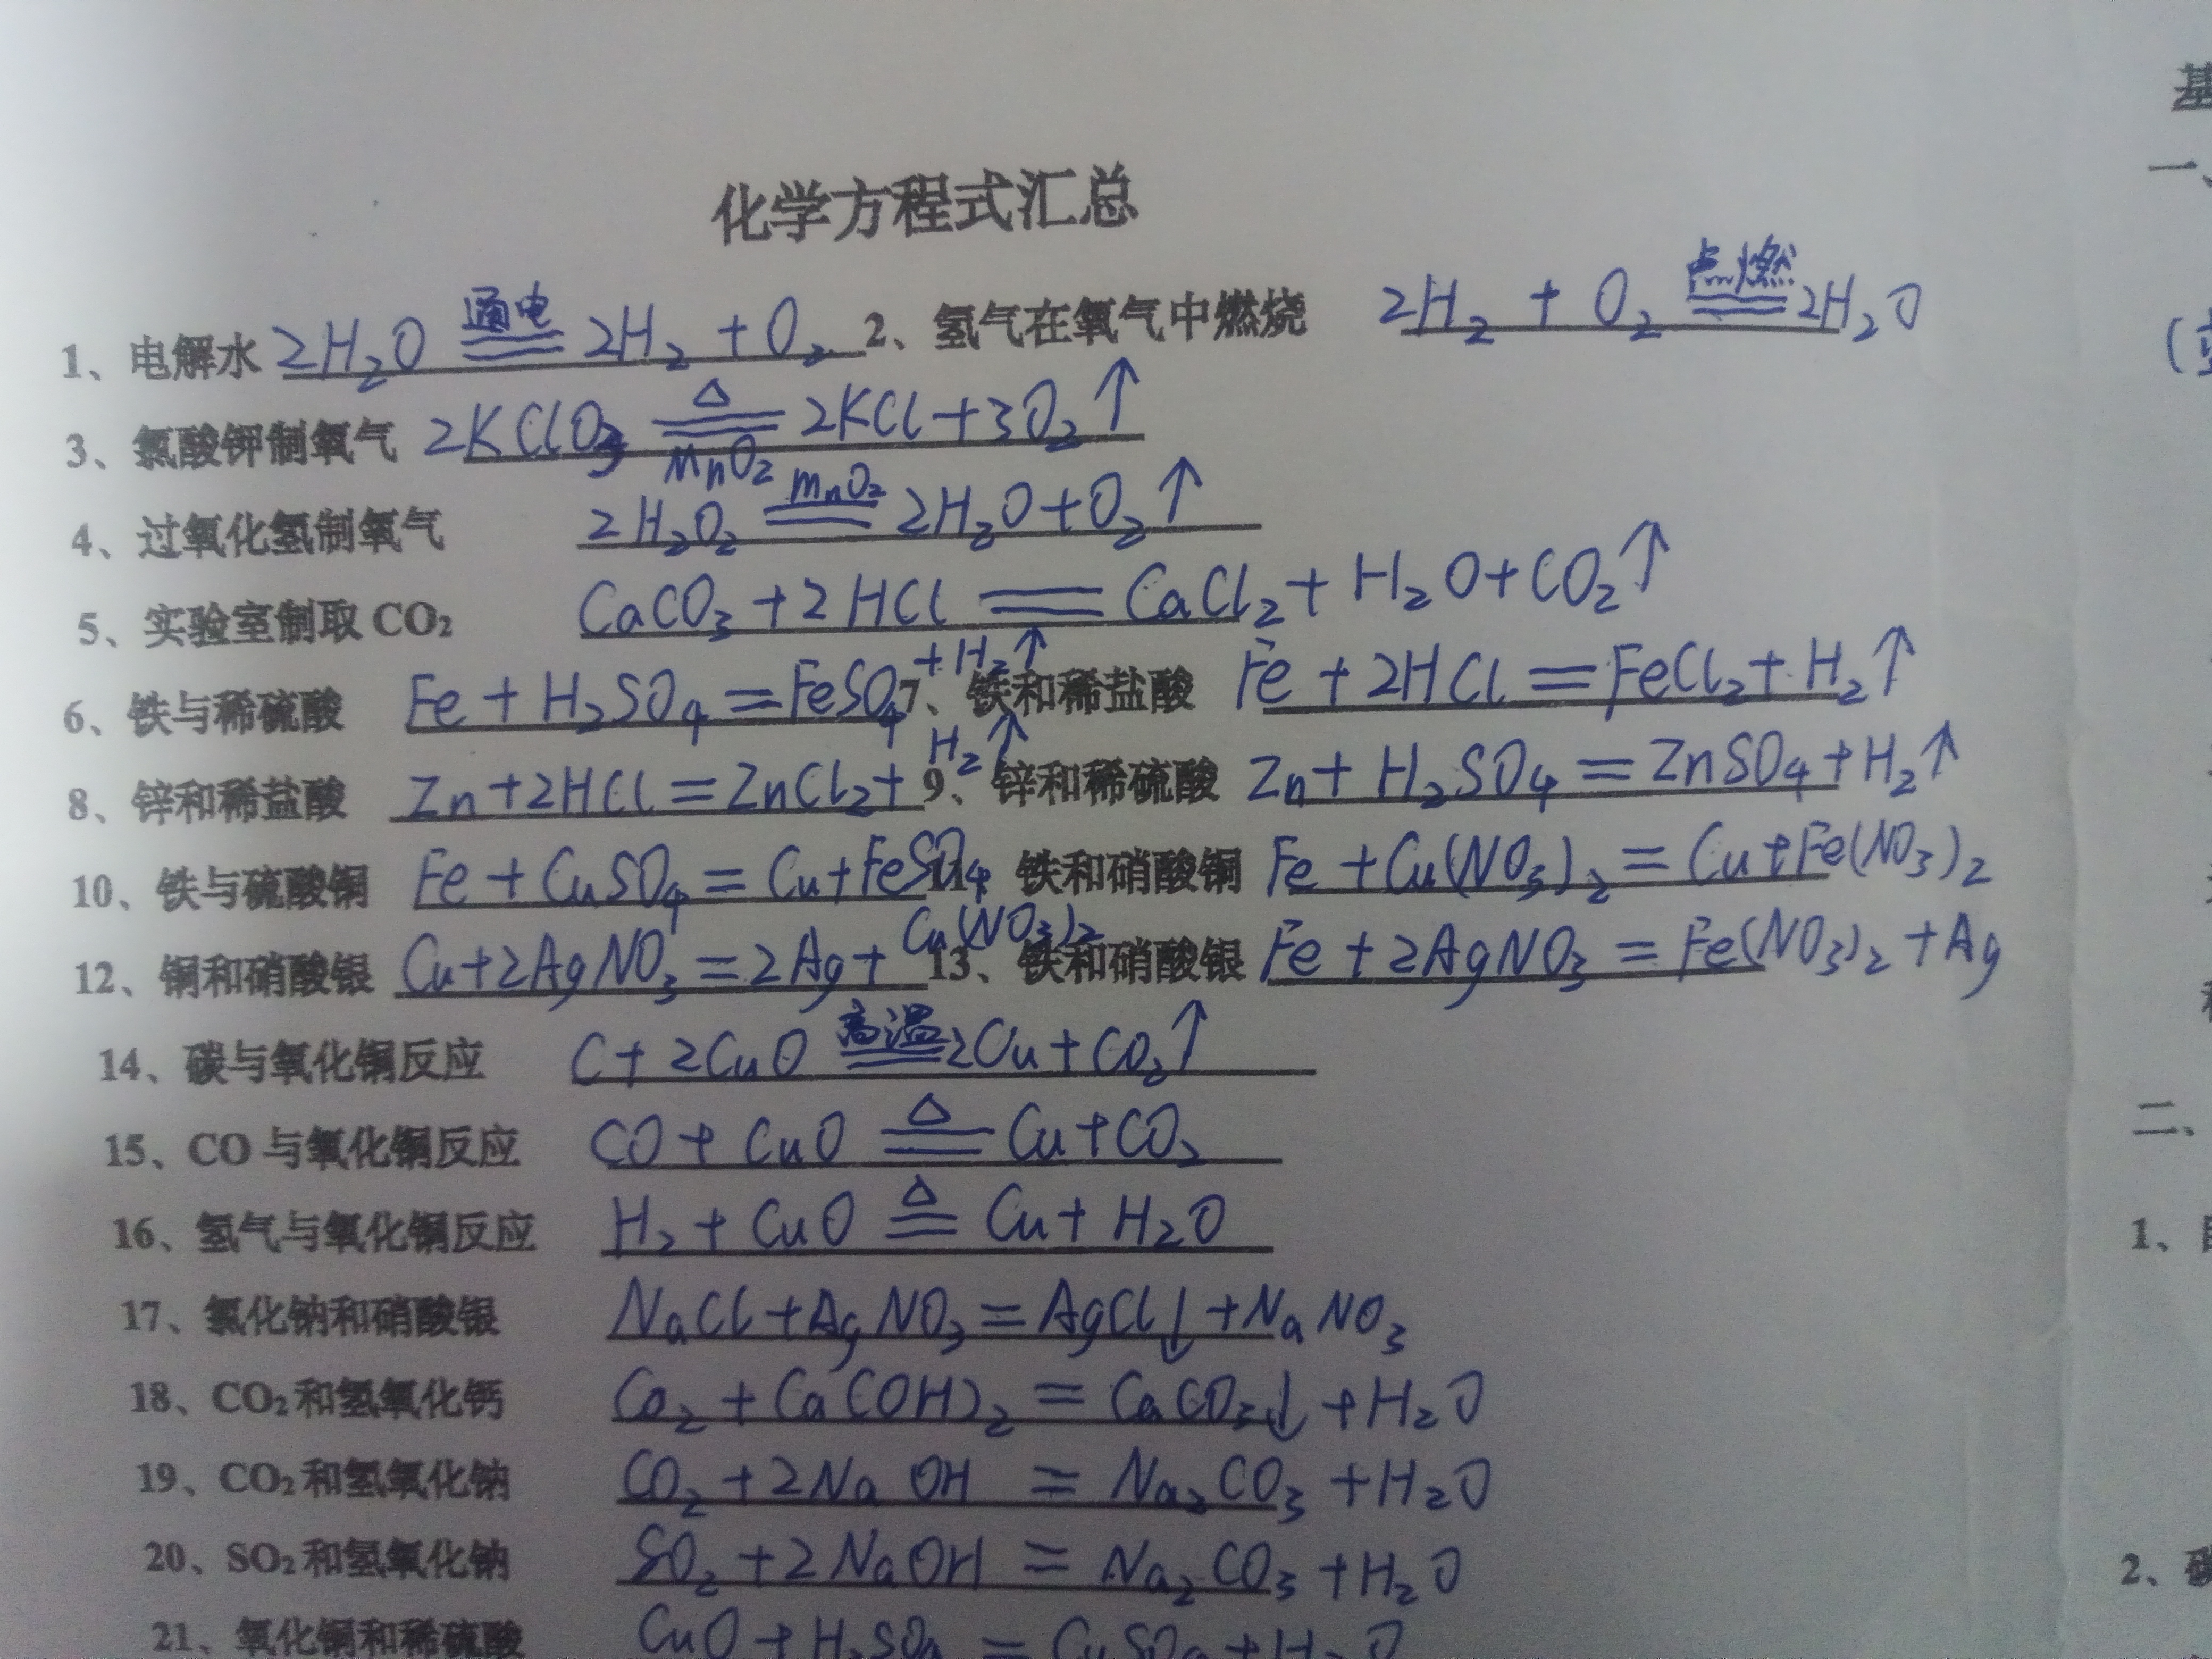 化学方程式汇总
1、电解水 2H₂O 通电 2H₂ + O₂ 2、氢气在氧气中燃烧 2H₂ + O₂ 点燃 2H₂O
3、氯酸钾制氧气 2KClO₃ △ MnO₂ 2KCl+3O₂↑
4、过氧化氢制氧气 2H₂O₂ MnO₂ 2H₂O+O₂↑
5、实验室制取 CO₂ CaCO₃+2HCl = CaCl₂+H₂O+CO₂↑
6、铁与稀硫酸 Fe+H₂SO₄=FeSO₄+H₂↑ 7、铁和稀盐酸 Fe+2HCl=FeCl₂+H₂↑
8、锌和稀盐酸 Zn+2HCl=ZnCl₂+H₂↑ 9、锌和稀硫酸 Zn+H₂SO₄=ZnSO₄+H₂↑
10、铁与硫酸铜 Fe+CuSO₄=Cu+FeSO₄ 11、铁和硝酸铜 Fe+Cu(NO₃)₂=Cu+Fe(NO₃)₂
12、铜和硝酸银 Cu+2AgNO₃=2Ag+Cu(NO₃)₂ 13、铁和硝酸银 Fe+2AgNO₃=Fe(NO₃)₂+Ag
14、碳与氧化铜反应 C+2CuO 高温 2Cu+CO₂↑
15、CO 与氧化铜反应 CO+CuO △ Cu+CO₂
16、氢气与氧化铜反应 H₂+CuO △ Cu+H₂O
17、氯化钠和硝酸银 NaCl+AgNO₃=AgCl↓+NaNO₃
18、CO₂和氢氧化钙 CO₂+Ca(OH)₂=CaCO₃↓+H₂O
19、CO₂和氢氧化钠 CO₂+2NaOH=Na₂CO₃+H₂O
20、SO₂和氢氧化钠 SO₂+2NaOH=Na₂CO₃+H₂O
21、氧化铜和稀硫酸 CuO+H₂SO₄=CuSO₄+H₂O
基
一、
二、
1、
2、碳